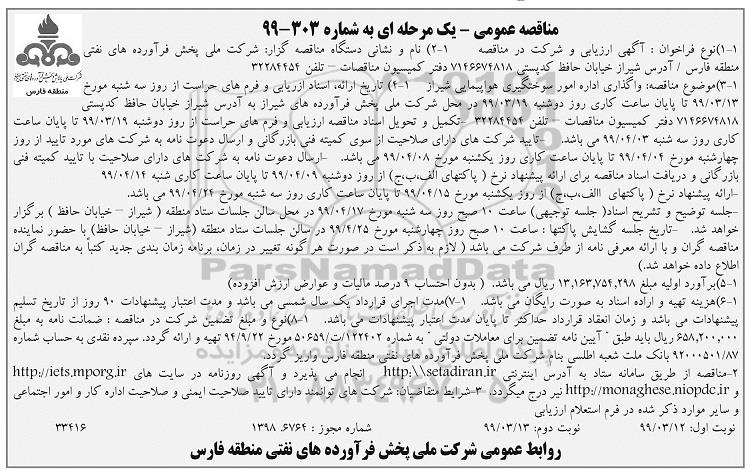 مناقصه عمومی - یک مرحله ای به شماره ۳۰۳-۹۹
شرکت ملی پخش فرآورده های نفتی ایران
منطقه فارس
۱-۱)نوع فراخوان : آگهی ارزیابی و شرکت در مناقصه ۲-۱) نام و نشانی دستگاه مناقصه گزار: شرکت ملی پخش فرآورده های نفتی
منطقه فارس / آدرس شیراز خیابان حافظ کدپستی ۷۱۴۶۶۷۴۸۱۸ دفتر کمیسیون مناقصات – تلفن ۳۲۲۸۴۴۵۴
۳-۱)موضوع مناقصه: واگذاری اداره امور سوختگیری هواپیمایی شیراز ۴-۱) تاریخ ارائه، اسناد ارزیابی و فرم های حراست از روز سه شنبه مورخ
۹۹/۰۳/۱۳ تا پایان ساعت کاری روز دوشنبه ۹۹/۰۳/۱۹ در محل شرکت ملی پخش فرآورده های شیراز به آدرس شیراز خیابان حافظ کدپستی
۷۱۴۶۶۷۴۸۱۸ دفتر کمیسیون مناقصات - تلفن ۳۲۲۸۴۴۵۴ -تکمیل و تحویل اسناد مناقصه ارزیابی و فرم های حراست از روز دوشنبه ۹۹/۰۳/۱۹ تا پایان ساعت
کاری روز سه شنبه مورخ ۹۹/۰۴/۰۳ می باشد. -تایید شرکت های دارای صلاحیت از سوی کمیته فنی بازرگانی و ارسال دعوت نامه به شرکت های مورد تایید از روز
چهارشنبه مورخ ۹۹/۰۴/۰۴ تا پایان ساعت کاری روز یکشنبه مورخ ۹۹/۰۴/۰۸ می باشد. -ارسال دعوت نامه به شرکت های دارای صلاحیت با تایید کمیته فنی
بازرگانی و دریافت اسناد مناقصه برای ارائه پیشنهاد نرخ ( پاکتهای الف،ب،ج) از روز دوشنبه ۹۹/۰۴/۰۹ تا پایان ساعت کاری شنبه ۹۹/۰۴/۱۴
-ارائه پیشنهاد نرخ ( پاکتهای االف،ب،ج) از روز یکشنبه مورخ ۹۹/۰۴/۱۵ تا پایان ساعت کاری روز سه شنبه مورخ ۹۹/۰۴/۲۴ می باشد.
-جلسه توضیح و تشریح اسناد( جلسه توجیهی) ساعت ۱۰ صبح روز سه شنبه مورخ ۹۹/۰۴/۱۷ در محل سالن جلسات ستاد منطقه ( شیراز – خیابان حافظ ) برگزار
خواهد شد. -تاریخ جلسه گشایش پاکتها : ساعت ۱۰ صبح روز چهارشنبه مورخ ۹۹/۴/۲۵ در سالن جلسات ستاد منطقه (شیراز – خیابان حافظ) با حضور نماینده
مناقصه گران و با ارائه معرفی نامه از طرف شرکت می باشد ( لازم به ذکر است در صورت هر گونه تغییر در زمان، برنامه زمان بندی جدید کتباً به مناقصه گران
اطلاع داده خواهد شد.)
۵-۱)برآورد اولیه مبلغ ۱۳,۱۶۳,۷۵۴,۲۹۸ ریال می باشد. ( بدون احتساب ۹ درصد مالیات و عوارض ارزش افزوده)
۶-۱)هزینه تهیه و اراده اسناد به صورت رایگان می باشد. ۷-۱)مدت اجرای قرارداد یک سال شمسی می باشد و مدت اعتبار پیشنهادات ۹۰ روز از تاریخ تسلیم
پیشنهادات می باشد و زمان انعقاد قرارداد حداکثر تا پایان مدت اعتبار پیشنهادات می باشد. ۸-۱)نوع و مبلغ تضمین شرکت در مناقصه : ضمانت نامه به مبلغ
۶۵۸,۲۰۰,۰۰۰ ریال باید طبق " آیین نامه تضمین برای معاملات دولتی " به شماره ۱۲۳۴۰۲/ت۵۰۶۵۹ مورخ ۹۴/۹/۲۲ تهیه و ارائه گردد. سپرده نقدی به حساب شماره
۹۲۰۰۰۵۰۱/۸۷ بانک ملت شعبه اطلسی بنام شرکت ملی پخش فرآورده های نفتی منطقه فارس واریز گردد.
۲-مناقصه از طریق سامانه ستاد به آدرس اینترنتی http:\\setadiran.ir انجام می پذیرد و آگهی روزنامه در سایت های http://iets.mporg.ir
و http://monaghese.niopdc.ir نیر درج میگردد. ۳-شرایط متقاضیان: شرکت های توانمند دارای تایید صلاحیت ایمنی و صلاحیت اداره کار و امور اجتماعی
و سایر موارد ذکر شده در فرم استعلام ارزیابی
نوبت اول: ۹۹/۰۳/۱۲ نوبت دوم: ۹۹/۰۳/۱۳ شماره مجوز : ۱۳۹۸.۶۷۶۴ ۳۳۴۱۶
روابط عمومی شرکت ملی پخش فرآورده های نفتی منطقه فارس
ParsNamadData